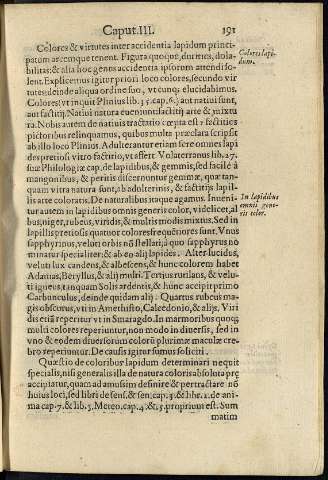 Caput. III. 191
Colores & virtutes inter accidentia lapidum princi-
patum arcemque tenent. Figura quoque, durities, dola-
bilitas: & alia hoc genus accidentia ipsorum attendi so-
lent. Explicemus igitur priori loco colores, secundo vir
tutes; deinde aliqua ordine suo, vt cunque elucidabimus.
Colores (vt inquit Plinius lib. 35. cap. 6.) aut natiui sunt,
aut factitij. Natiui natura eueniunt: factitij arte & mixtu
ra. Nobis autem de natiuis tractatio cœpta est: factitios
pictoribus relinquamus, quibus multa præclara scripsit
ab illo loco Plinius. Adulterantur etiam fere omnes lapi
des pretiosi vitro factitio, vt asserit Volaterranus lib. 27.
suæ Philologiæ cap. de lapidibus, & gemmis, sed facile à
mangonibus, & peritis discernuntur gemmæ, quæ tan-
quam vitra natura sunt, ab adulterinis, & factitijs lapil-
lis arte coloratis. De naturalibus itaque agamus. Inueni-
tur autem in lapidibus omnis generis color, videlicet, al
bus, niger, rubeus, viridis, & multis modis mixtus. Sed in
lapillis pretiosis quatuor colores frequẽtiores sunt. Vnus
sapphyrinus, veluti orbis nõ stellati, à quo sapphyrus no
minatur specialiter, & ab eo alij lapides. Alter lucidus,
veluti lux candens, & albescens, & hunc colorem habet
Adamas, Beryllus, & alij multi. Tertius rutilans, & velu-
ti igneus, tanquam Solis ardentis, & hunc accipit primo
Carbunculus, deinde quidam alij. Quartus rubeus ma-
gis obscurus, vt in Amethisto, Calcedonio, & alijs. Viri
dis etiã reperitur vt in Smaragdo. In marmoribus quoq;
multi colores reperiuntur, non modo in diuersis, sed in
vno & eodem diuersorum colorũ plurimæ maculæ cre-
bro reperiuntur. De causis igitur sumus soliciti.
Quæstio de coloribus lapidum determinari nequit
specialis, nisi generalis illa de natura coloris absoluta præ
accipiatur, quam ad amussim definire & pertractare nõ
huius loci, sed libri de sens. & sen. cap. 3. & libr. 2. de ani
ma cap. 7. & lib. 3. Meteo. cap. 4. & 5. proprium est. Sum
matim
Colores lapi-
dum.
In lapidibus
omnis gene-
ris color.